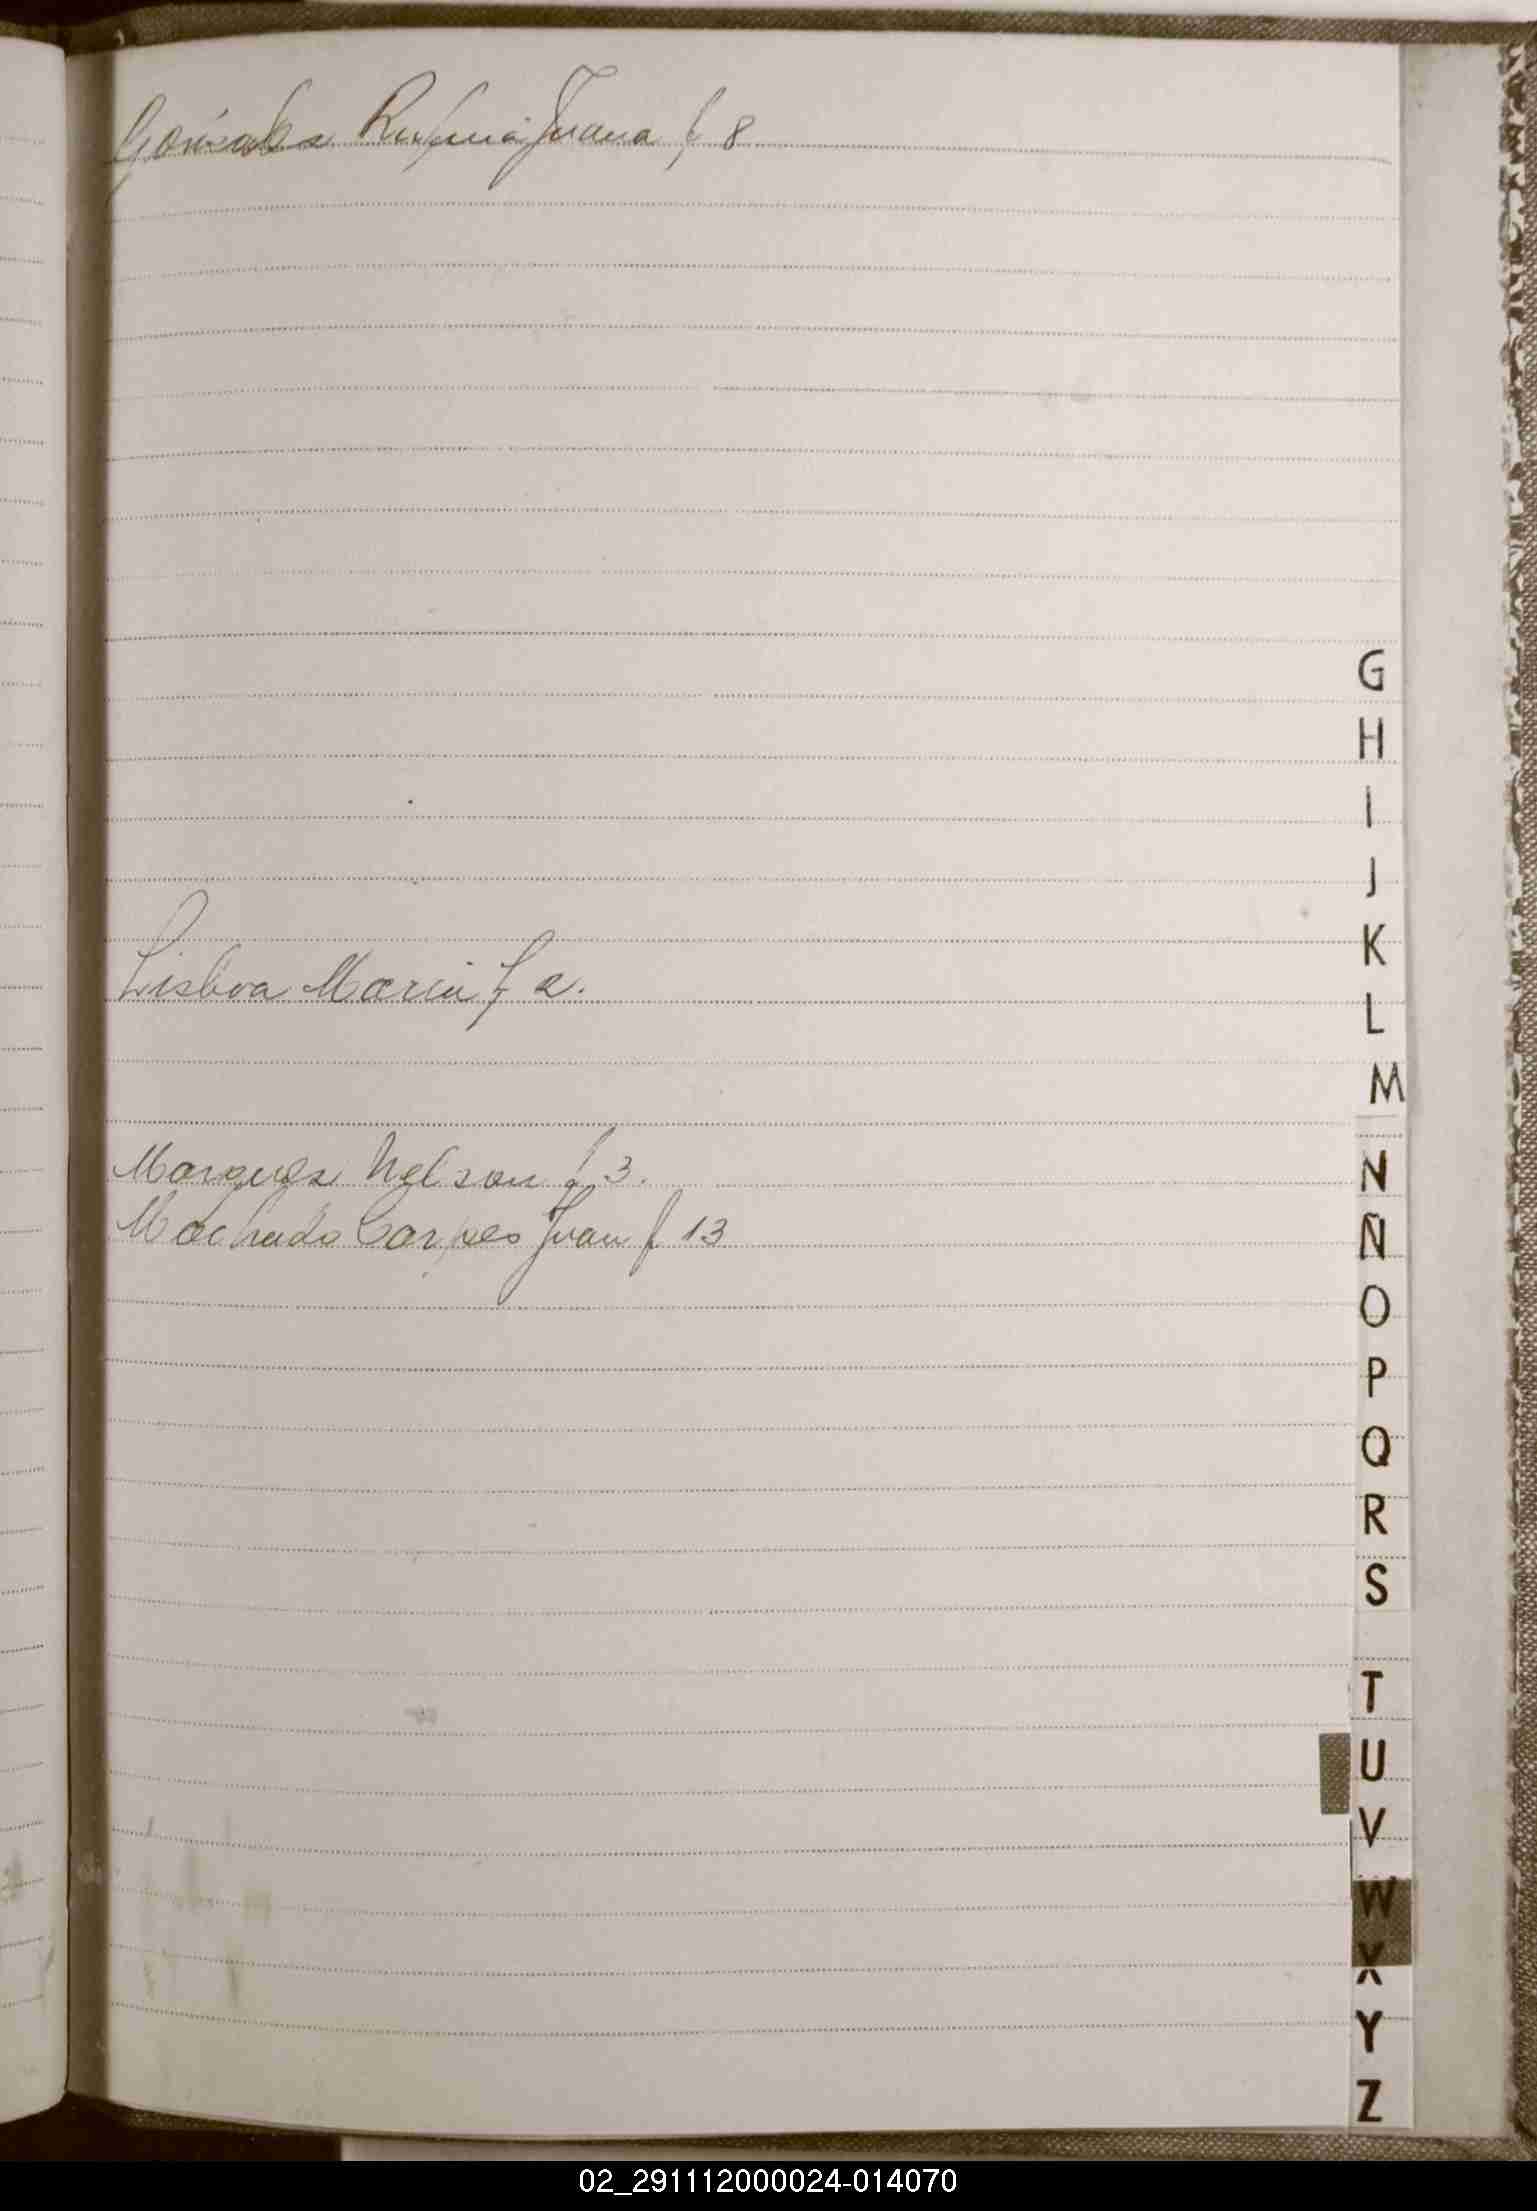 Gonzalez Rufina Juana f 8
G
H
I
J
K
L
Lisboa Maria f 2.
M
Marquez Nelson f 3.
Machado Carpes Juan f 13
N
Ñ
O
P
Q
R
S
T
U
V
W
X
Y
Z
02_291112000024-014070